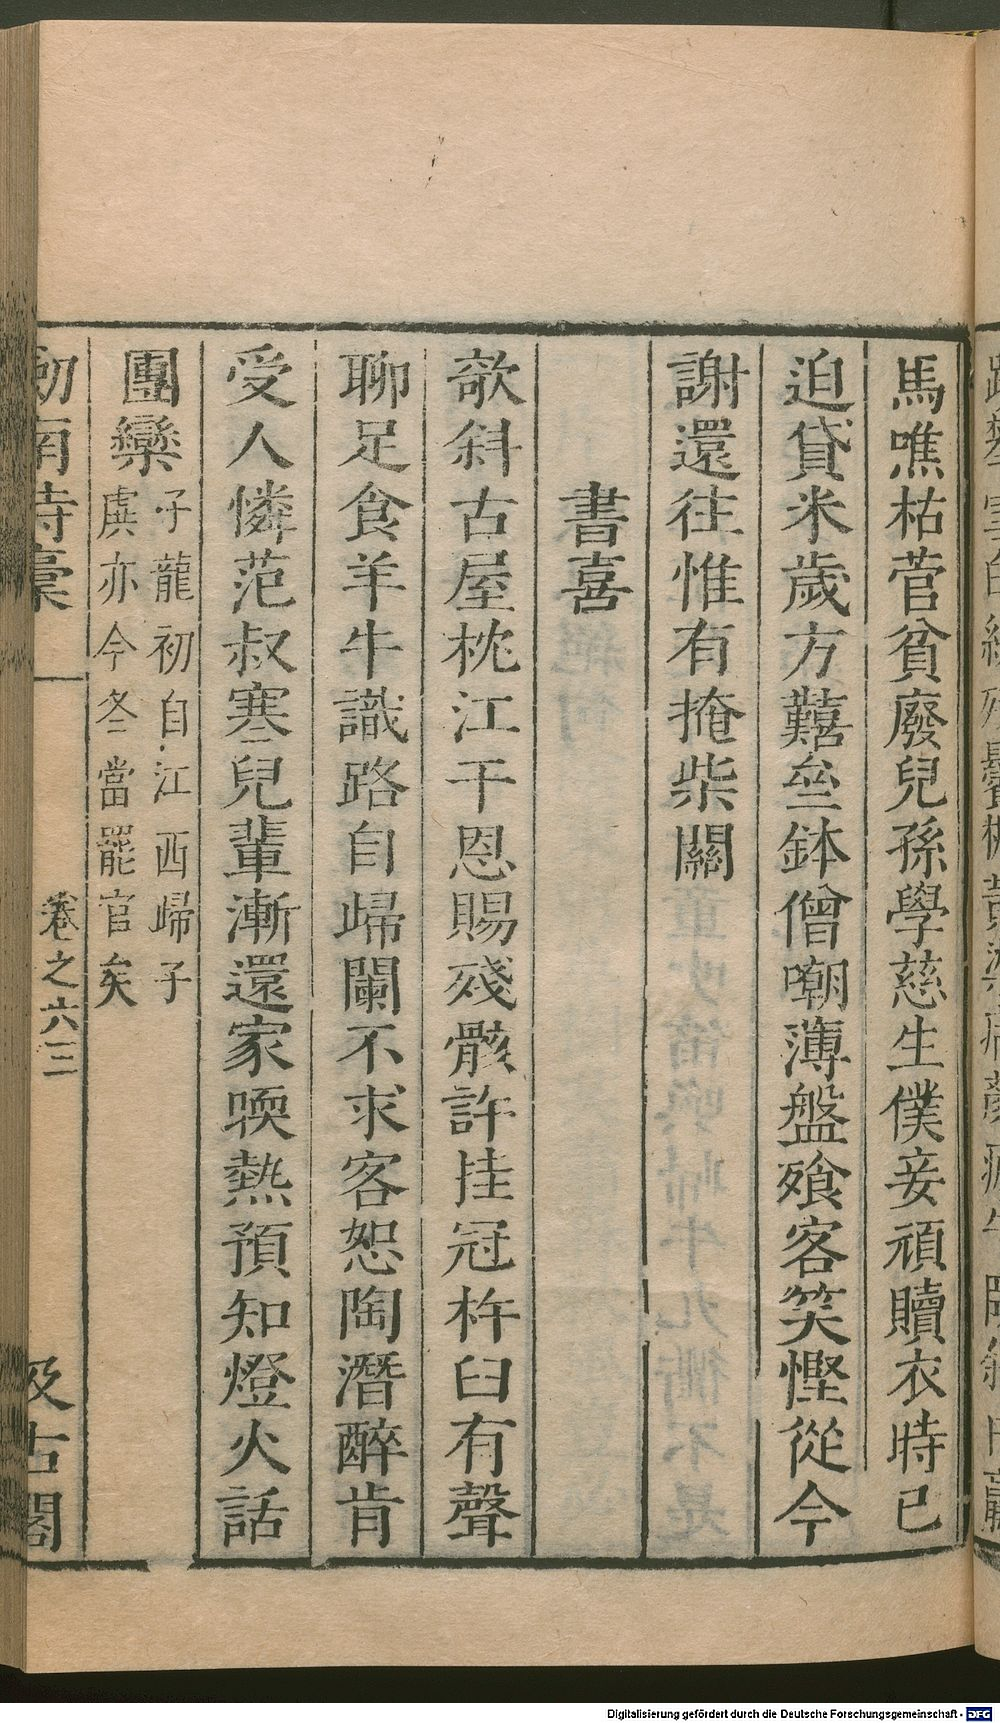 馬噍枯萱貧廢兒孫學慈生僕妾頑贖衣時已
迫貸米歲方囏垒鉢僧嘲薄盤飱客笑慳從今
謝還往惟有掩柴關
書喜
欹斜古屋枕江干恩賜殘骸許挂冠杵臼有聲
聊足食羊牛識路自歸闌不求客恕陶潛醉肯
受人憐范叔寒兒輩漸還家喫熱預知燈火話
團欒
子龍初自江西歸子
虡亦今冬當罷官矣
劎南詩稾
卷之六三
汲古閣
Digitalisierung gefördert durch die Deutsche Forschungsgemeinschaft - DFG